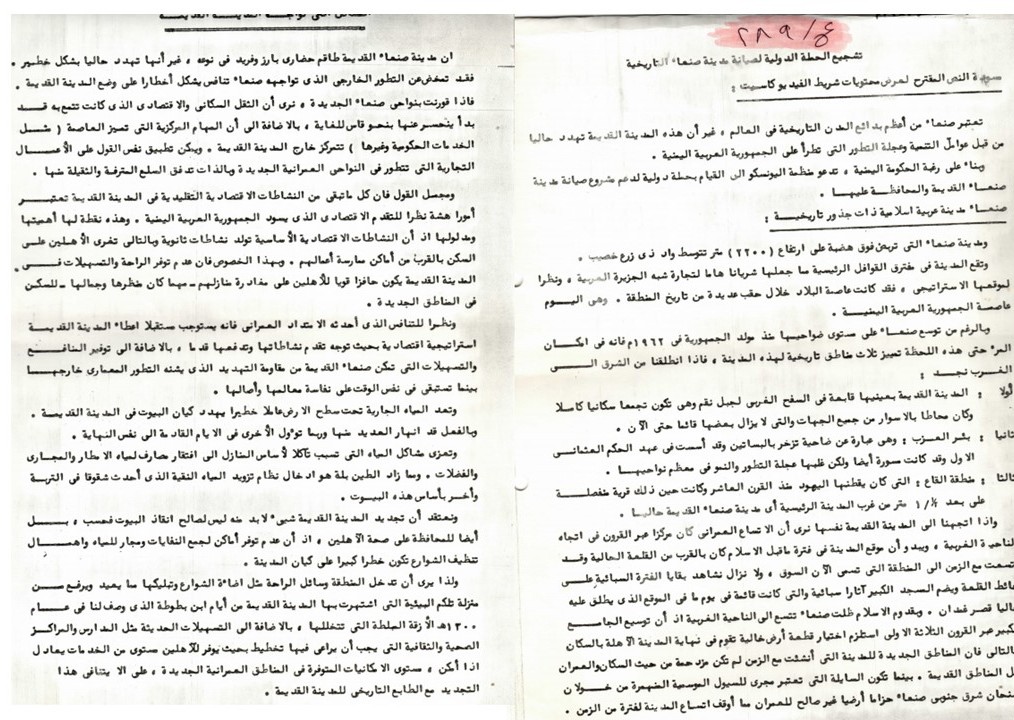 ٢٨٩/٤٤
تشجيع الحملة الدولية لصيانة مدينة صنعاء التاريخية
مسودة النص المقترح لعرض محتويات شريط الفيديو كاسيت :
تعتبر صنعاء من أعظم بدائع المدن التاريخية في العالم ، غير أن هذه المدينة القديمة تهدد حاليا
من قبل عوامل التنمية وعجلة التطور التي تطرأ على الجمهورية العربية اليمنية .
وبناء على رغبة الحكومة اليمنية ، تدعو منظمة اليونسكو الى القيام بحملة دولية لدعم مشروع صيانة مدينة
صنعاء القديمة والمحافظة عليها .
صنعاء مدينة عربية اسلامية ذات جذور تاريخية :
ومدينة صنعاء التي تربض فوق هضبة على ارتفاع (٢٢٠٠) متر تتوسط واد ذي زرع خصيب .
وتقع المدينة في مفترق القوافل الرئيسية مما جعلها شريانا هاما لتجارة شبه الجزيرة العربية ، ونظرا
لموقعها الاستراتيجي ، فقد كانت عاصمة البلاد خلال حقب عديدة من تاريخ المنطقة . وهي اليوم
عاصمة الجمهورية العربية اليمنية .
وبالرغم من توسع صنعاء على مستوى ضواحيها منذ مولد الجمهورية في ١٩٦٢م فانه في امكان
المرء حتى هذه اللحظة تمييز ثلاث مناطق تاريخية لهذه المدينة ، فاذا انطلقنا من الشرق الى
الغرب نجد :
أولا : المدينة القديمة بعينيها قابعة في السفح الغربي لجبل نقم وهي تكون تجمعا سكانيا كاملا
وكان محاطا بالاسوار من جميع الجهات والتي لا يزال بعضها قائما حتى الآن .
ثانيا : بئر العزب : وهي عبارة عن ضاحية تزخر بالبساتين وقد أسست في عهد الحكم العثماني
الاول وقد كانت مسورة أيضا ولكن غلبها عجلة التطور والنمو في معظم نواحيها .
ثالثا : منطقة القاع : التي كان يقطنها اليهود منذ القرن العاشر وكانت حين ذلك قرية منفصلة
على بعد متر من غرب المدينة الرئيسية أي مدينة صنعاء القديمة حاليا .
واذا اتجهنا الى المدينة القديمة نفسها نرى أن الاتساع العمراني كان مركزا عبر القرون في اتجاه
الناحية الغربية ، ويبدو أن موقع المدينة في فترة ماقبل الاسلام كان بالقرب من القلعة الحالية وقد
اتسعت مع الزمن الى المنطقة التي تسمى الآن السوق ، ولا نزال نشاهد بقايا الفترة السبائية على
حائط القلعة ويضم المسجد الكبير آثارا سبائية والتي كانت قائمة في يوم ما في الموقع الذي يطلق عليه
حاليا قصر غمدان . وبقدوم الاسلام ظلت صنعاء تتسع الى الناحية الغربية اذ أن توسيع الجامع
الكبير عبر القرون الثلاثة الاولى استلزم اختيار قطعة أرض خالية تقوم في نهاية المدينة الآهلة بالسكان
وبالتالي فان المناطق الجديدة للمدينة التي أنشئت مع الزمن لم تكن مزدحمة من حيث السكان والعمران
المناطق القديمة . بينما تكون السايلة التي تعتبر مجرى للسيول الموسمية المنهمرة من خولان
شرق جنوبي صنعاء حزاما أرضيا غير صالح للعمران مما أوقف اتساع المدينة لفترة من الزمن .
المدينة القديمة
ان مدينة صنعاء القديمة طاقم حضاري بارز وفريد في نوعه ، غير أنها تهدد حاليا بشكل خطير .
فقد تمخض عن التطور الخارجي الذي تواجهه صنعاء تنافس يشكل أخطارا على وضع المدينة القديمة .
فاذا قورنت بنواحي صنعاء الجديدة ، نرى أن الثقل السكاني والاقتصادي الذي كانت تتمتع به قد
بدأ ينحسر عنها بنحو قاس للغاية ، بالاضافة الى أن المهام المركزية التي تميز العاصمة ( مثل
الخدمات الحكومية وغيرها ) تتمركز خارج المدينة القديمة ، ويمكن تطبيق نفس القول على الأعمال
التجارية التي تتطور في النواحي العمرانية الجديدة وبالذات تدفق السلع المترفة والثقيلة منها .
ومجمل القول فان كل ماتبقى من النشاطات الاقتصادية التقليدية في المدينة القديمة تعتبر
أمورا هشة نظرا للتقدم الاقتصادي الذي يسود الجمهورية العربية اليمنية . وهذه نقطة لها أهميتها
ومدلولها اذ أن النشاطات الاقتصادية الأساسية تولد نشاطات ثانوية وبالتالي تغري الأهلين على
السكن بالقرب من أماكن ممارسة أعمالهم . وبهذا الخصوص فان عدم توفر الراحة والتسهيلات في
المدينة القديمة يكون حافزا قويا للأهلين على مغادرة منازلهم – مهما كان منظرها وجمالها – للسكن
في المناطق الجديدة .
ونظرا للتنافس الذي أحدثه الامتداد العمراني فانه يستوجب مستقبلا اعطاء المدينة القديمة
استراتيجية اقتصادية بحيث توجه تقدم نشاطاتها وتدفعها قدما ، بالاضافة الى توفير المنافع
والتسهيلات التي تمكن صنعاء القديمة من مقاومة التهديد الذي يشنه التطور المعماري خارجها
بينما تستبقى في نفس الوقت على نفاسة معالمها وأصالها .
وتعد المياه الجارية تحت سطح الارض عاملا خطيرا يهدد كيان البيوت في المدينة القديمة .
وبالفعل قد انهار العديد منها وربما تؤول الأخرى في الايام القادمة الى نفس النهاية .
وتعزى مشاكل المياه التي تسبب تآكلا لأساس المنازل الى افتقار مصارف لمياه الامطار والمجاري
والفضلات . ومما زاد الطين بلة هو ادخال نظام تزويد المياه النقية الذي أحدث شقوقا في التربة
وأضر بأساس هذه البيوت .
ونعتقد أن تجديد المدينة القديمة شيء لا بد منه ليس لصالح انقاذ البيوت فحسب ، بل
أيضا للمحافظة على صحة الآهلين ، اذ أن عدم توفر أماكن لجمع النفايات ومجار للمياه واهمال
تنظيف الشوارع تكون خطرا كبيرا على كيان المدينة .
ولذا يرى أن تدخل المنطقة وسائل الراحة مثل اضاءة الشوارع وتبليكها مما يعيد ويرفع من
منزلة تلكم البيئية التي اشتهرت بها المدينة القديمة من أيام ابن بطوطة الذي وصف لنا في عام
١٣٠٠هـ الأزقة المبلطة التي تتخللها ، بالاضافة الى التسهيلات الحديثة مثل المدارس والمراكز
الصحية والثقافية التي يجب أن يراعى فيها تخطيط بحيث يوفر للآهلين مستوى من الخدمات يعادل
اذا أمكن ، مستوى الامكانيات المتوفرة في المناطق العمرانية الجديدة ، على الا يتنافى هذا
التجديد مع الطابع التاريخي للمدينة القديمة .